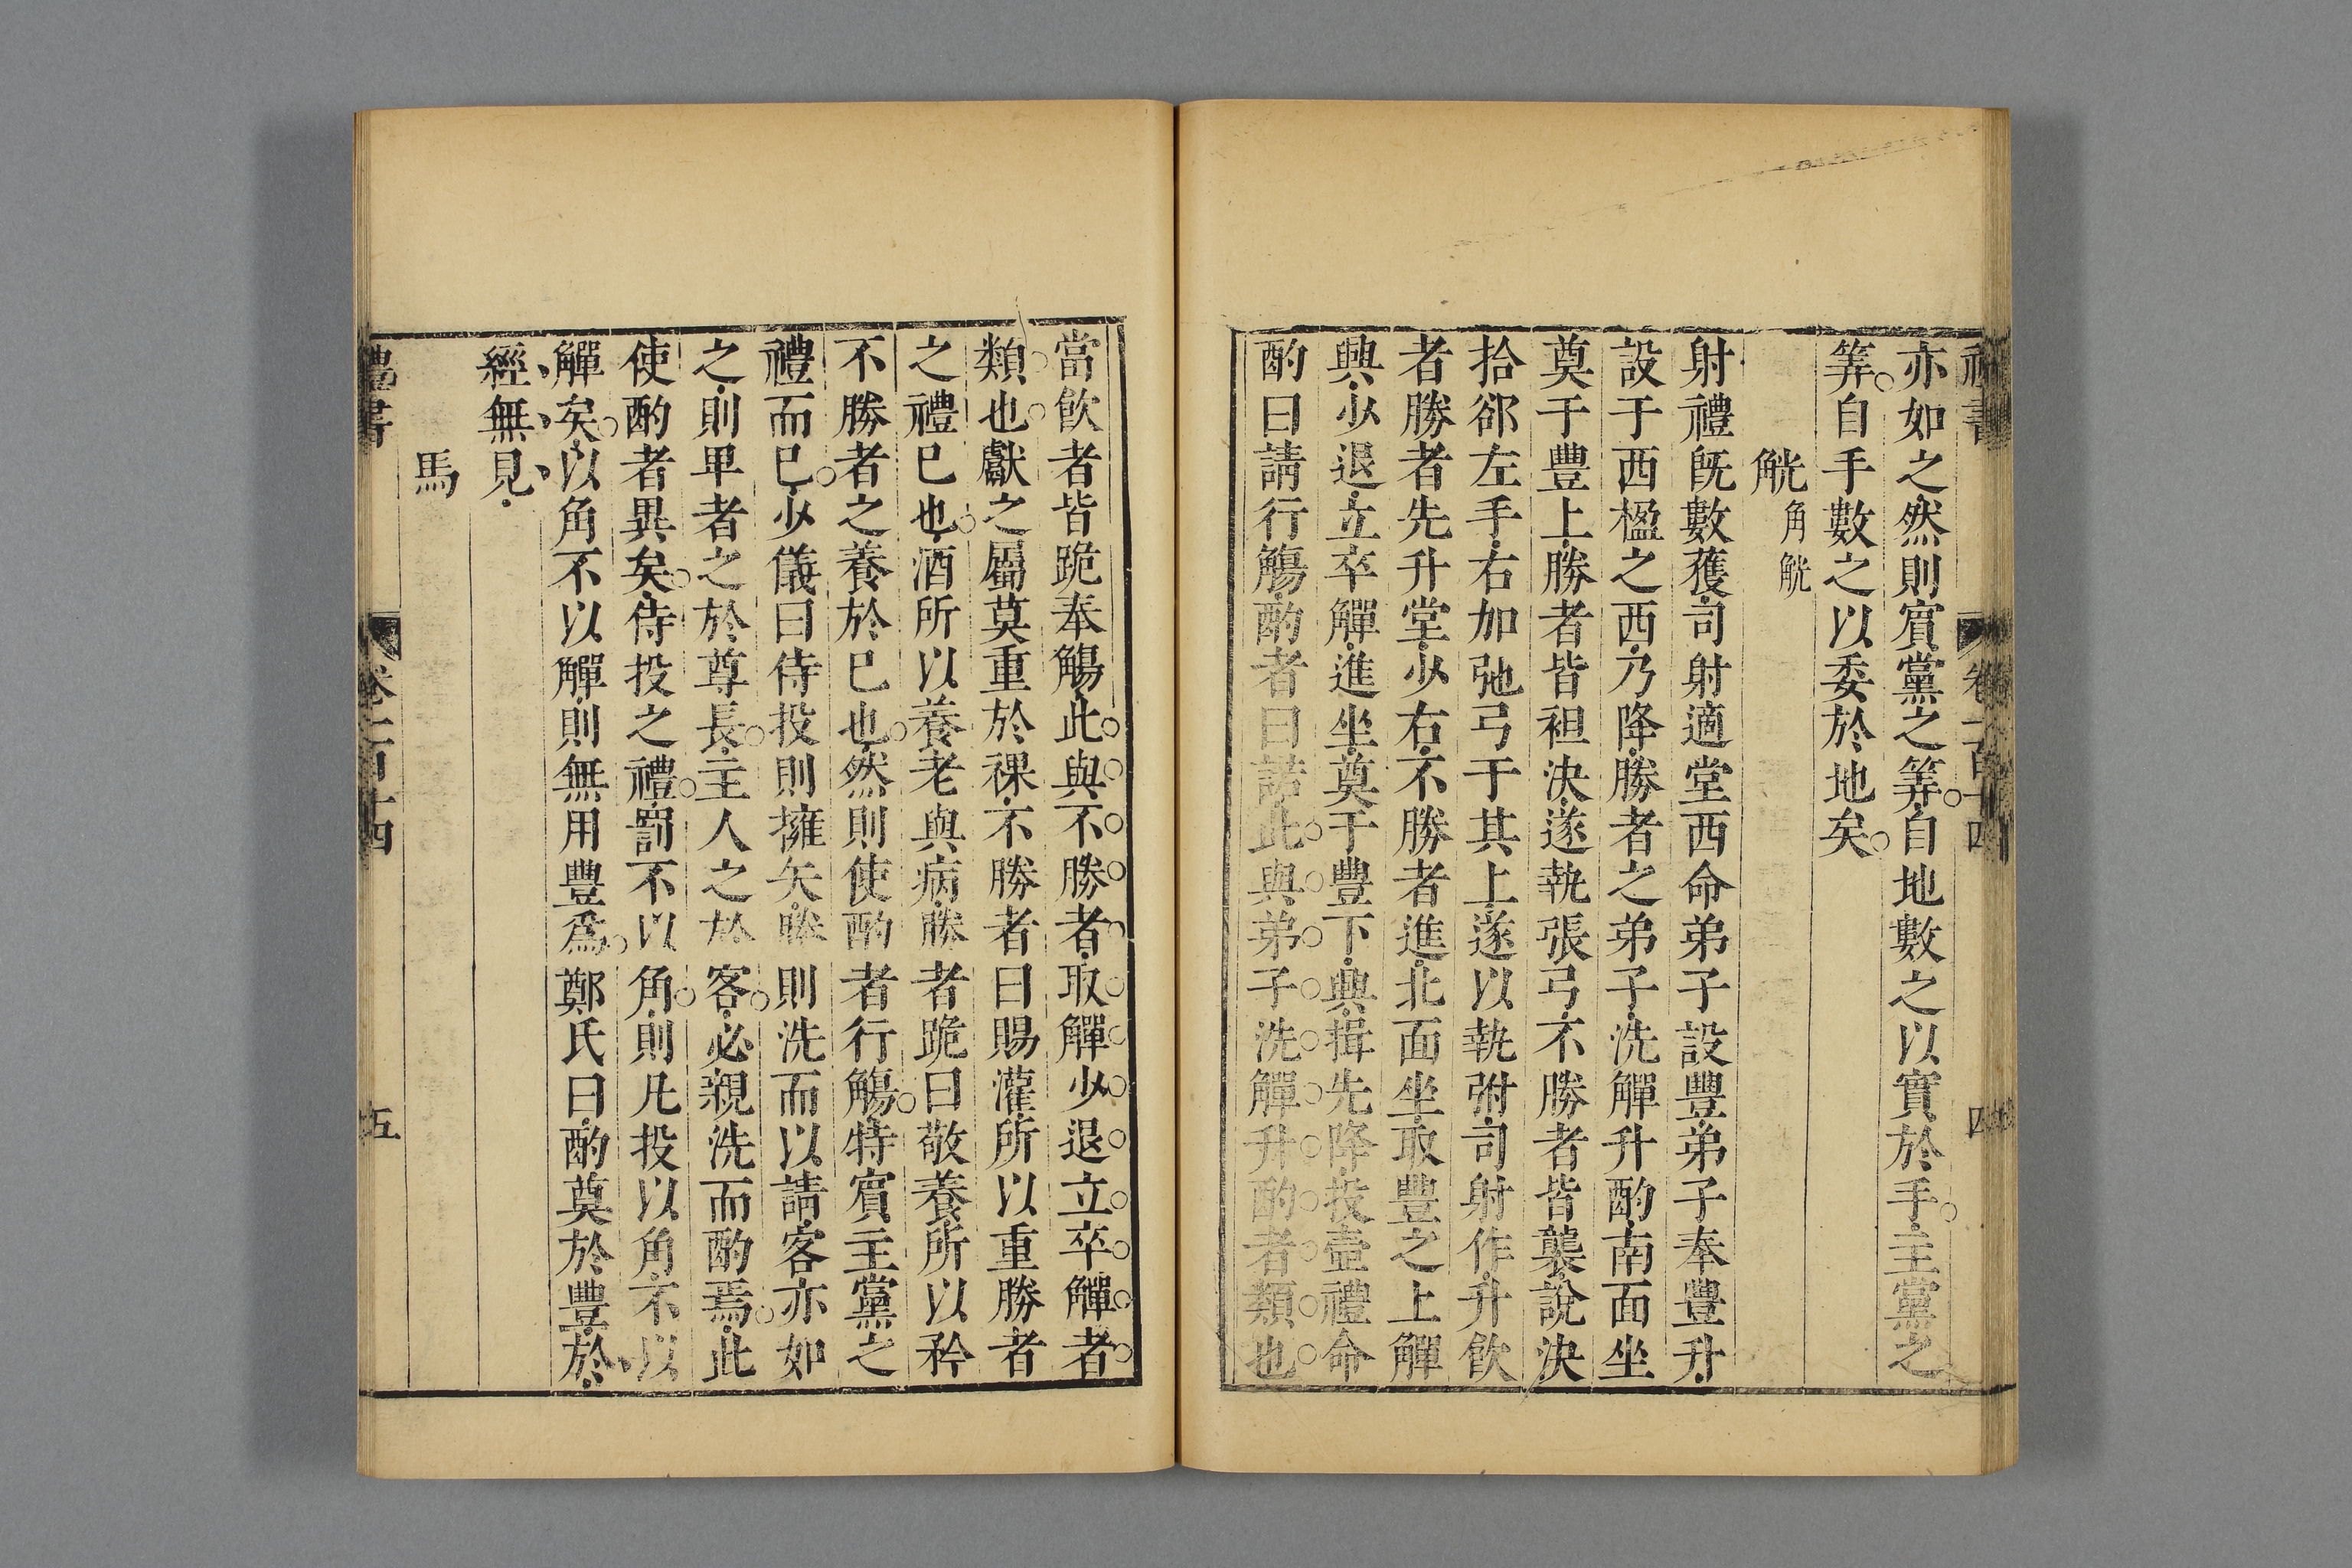 禮書 卷一百十四 四
亦如之然則賓黨之筭自地數之以實於手主黨之
筭自手數之以委於地矣
觥角觥
射禮旣數獲司射適堂西命弟子設豐弟子奉豐升
設于西楹之西乃降勝者之弟子洗觶升酌南面坐
奠于豐上勝者皆袒決遂執張弓不勝者皆襲說決
拾郤左手右加弛弓于其上遂以執弣司射作升飲
者勝者先升堂少右不勝者進北面坐取豐之上觶
興少退立卒觶進坐奠于豐下興揖先降投壺禮命
酌曰請行觴酌者曰諾此與弟子洗觶升酌者類也
當飲者皆跪奉觴此與不勝者取觶少退立卒觶者
類也獻之屬莫重於祼不勝者曰賜灌所以重勝者
之禮巳也酒所以養老與病勝者跪曰敬養所以矜
不勝者之養於巳也然則使酌者行觴特賓主黨之
禮而巳少儀曰侍投則擁矢勝則洗而以請客亦如
之則卑者之於尊長主人之於客必親洗而酌焉此
使酌者異矣侍投之禮罰不以角則凡投以角不以
觶矣以角不以觶則無用豐爲鄭氏曰酌奠於豐於
經無見
馬
禮書 卷一百十四 五